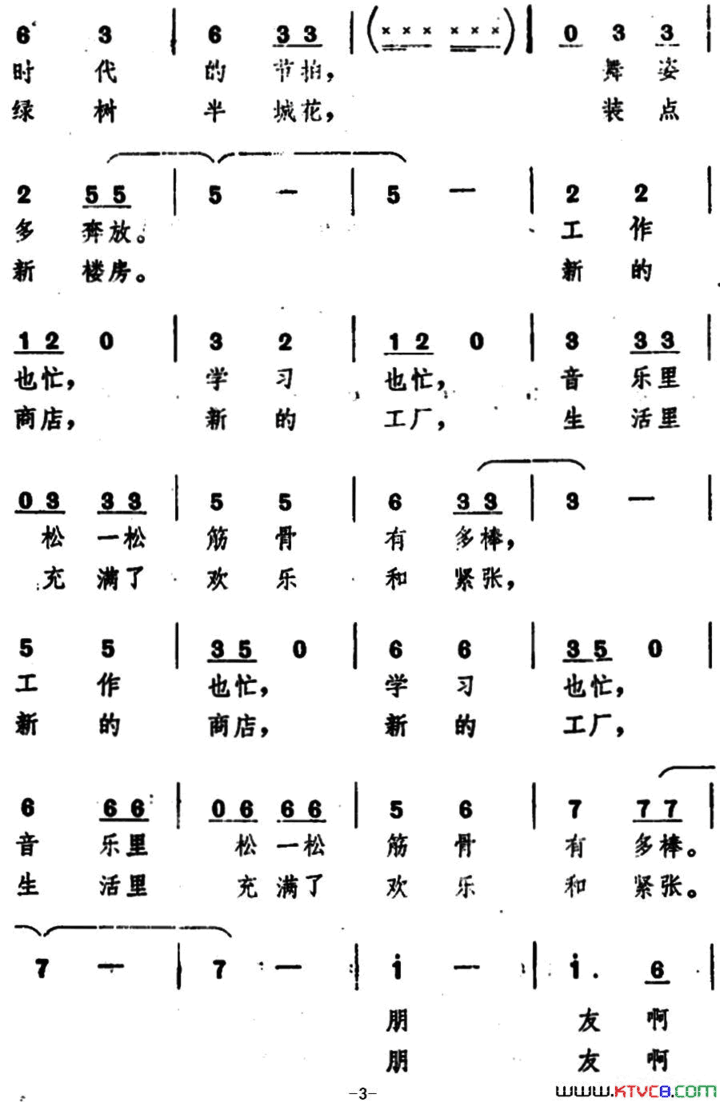 6 3 | 6 3 3 | (× × × × × ×) | 0 3 3 |
时 代 的 节拍， 舞 姿
绿 树 半 城花， 装 点
2 5 5 | 5 — | 5 — | 2 2 |
多 奔放。 工 作
新 楼房。 新 的
1 2 0 | 3 2 | 1 2 0 | 3 3 3 |
也忙， 学 习 也忙， 音 乐里
商店， 新 的 工厂， 生 活里
0 3 3 3 | 5 5 | 6 3 3 | 3 — |
松 一松 筋 骨 有 多棒，
充 满了 欢 乐 和 紧张，
5 5 | 3 5 0 | 6 6 | 3 5 0 |
工 作 也忙， 学 习 也忙，
新 的 商店， 新 的 工厂，
6 6 6 | 0 6 6 6 | 5 6 | 7 7 7 |
音 乐里 松 一松 筋 骨 有 多棒。
生 活里 充 满了 欢 乐 和 紧张。
7 — | 7 — | i — | i . 6 |
朋 友 啊
朋 友 啊
-3-
www.KTVC8.com